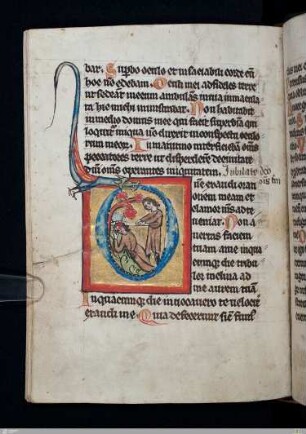 bar. Superbo oculo et insatiabili corde cū
hoc nō edebam. Oculi mei ad fideles terre
ut sedeant mecum ambulans in uia inmacula
ta hic michi ministrabat. Non habitabit
in medio domus mee qui facit superbiā qui
loquitur iniqua nō direxit in conspectu oculo
rum meor̄. In matutino interficiebā oms
peccatores terre ut disperderē de ciuitate
dn̄i om̄s operantes iniquitatem. Jubilate deo
Dn̄e exaudi orati
onem meam et
clamor m̄s ad te
ueniat. Non a
uertas faciem
tuam a me in qua
cumque die tribu
lor inclina ad
me aurem tuā
In quacumque die inuocauero te uelociter
exaudi me Quia defecerunt sic̄ fum̄